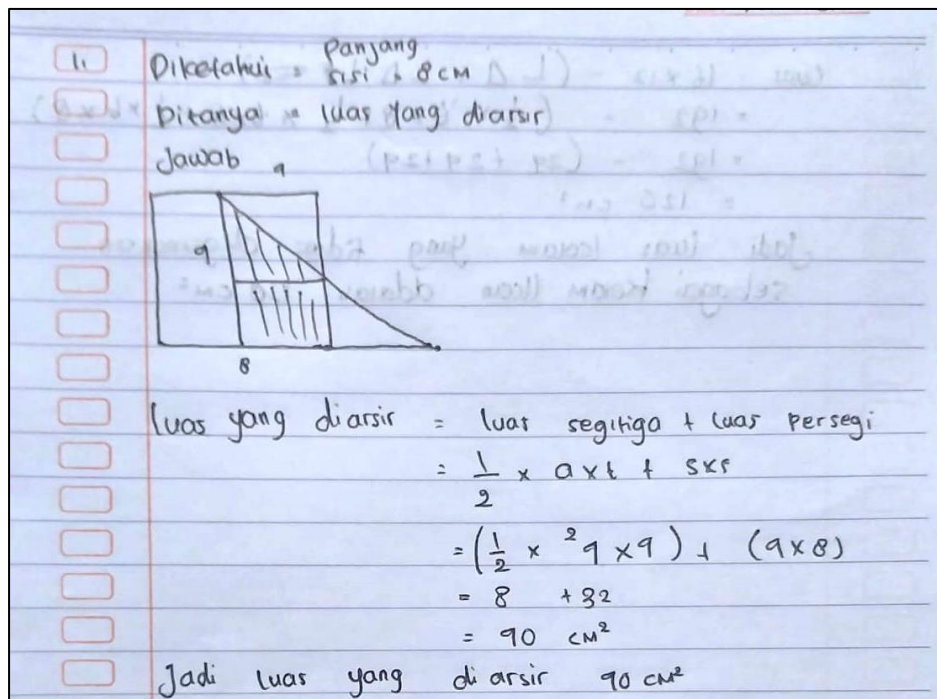 1.
Panjang
Diketahui = sisi = 8 cm
Ditanya = luas yang diarsir
Jawab 4
4
8
luas yang diarsir = luas segitiga + luas persegi
= 1/2 × a × t + s×s
= (1/2 × ²4 × 4) + (4×8)
= 8 + 32
= 40 cm²
Jadi luas yang diarsir 40 cm²